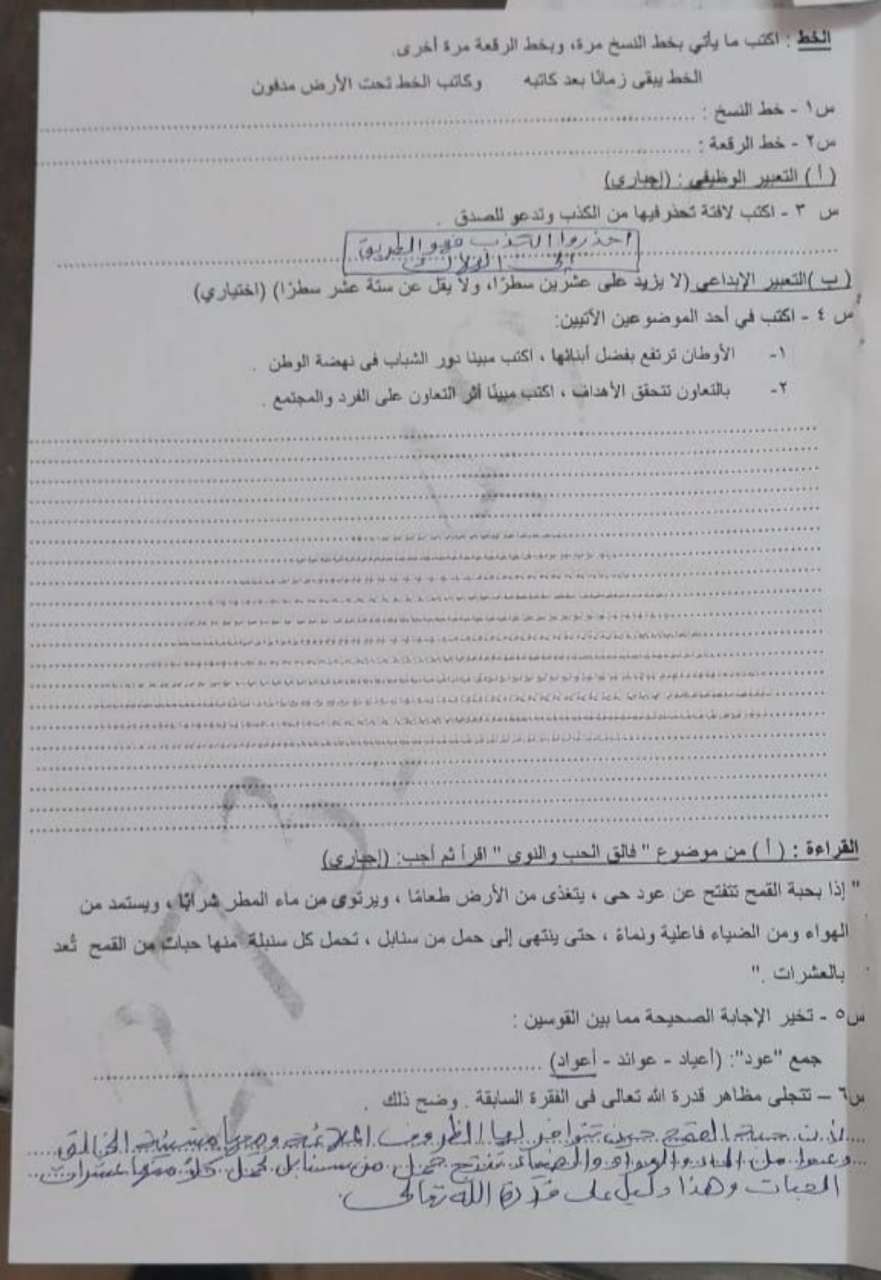 الخط : اكتب ما يأتي بخط النسخ مرة، وبخط الرقعة مرة أخرى.
الخط يبقى زمانًا بعد كاتبه وكاتب الخط تحت الأرض مدفون
س١ - خط النسخ :
س٢ - خط الرقعة :
( أ ) التعبير الوظيفي : (إجباري)
س ٣ - اكتب لافتة تحذر فيها من الكذب وتدعو للصدق .
احذروا الكذب فهو الطريق
إلى الهلاك
( ب )التعبير الإبداعي (لا يزيد على عشرين سطرًا، ولا يقل عن ستة عشر سطرًا) (اختياري)
س ٤ - اكتب في أحد الموضوعين الآتيين:
١- الأوطان ترتفع بفضل أبنائها ، اكتب مبينا دور الشباب فى نهضة الوطن .
٢- بالتعاون تتحقق الأهداف ، اكتب مبينًا أثر التعاون على الفرد والمجتمع .
القراءة : ( أ ) من موضوع " فالق الحب والنوى " اقرأ ثم أجب: (إجباري)
" إذا بحبة القمح تتفتح عن عود حى ، يتغذى من الأرض طعامًا ، ويرتوى من ماء المطر شرابًا ، ويستمد من
الهواء ومن الضياء فاعلية ونماءً ، حتى ينتهى إلى حمل من سنابل ، تحمل كل سنبلة منها حبات من القمح تُعد
بالعشرات ."
س٥ - تخير الإجابة الصحيحة مما بين القوسين :
جمع "عود": (أعياد - عوائد - أعواد)
س٦ – تتجلى مظاهر قدرة الله تعالى فى الفقرة السابقة . وضح ذلك .
لأن حبة القمح حين تتوافر لها الظروف الملائمة ومعها مشيئة الخالق
من الماء والهواء والضياء تتفتح حمل من سنابل تحمل كل منها عشرات
الحبات وهذا دليل على قدرة الله تعالى .